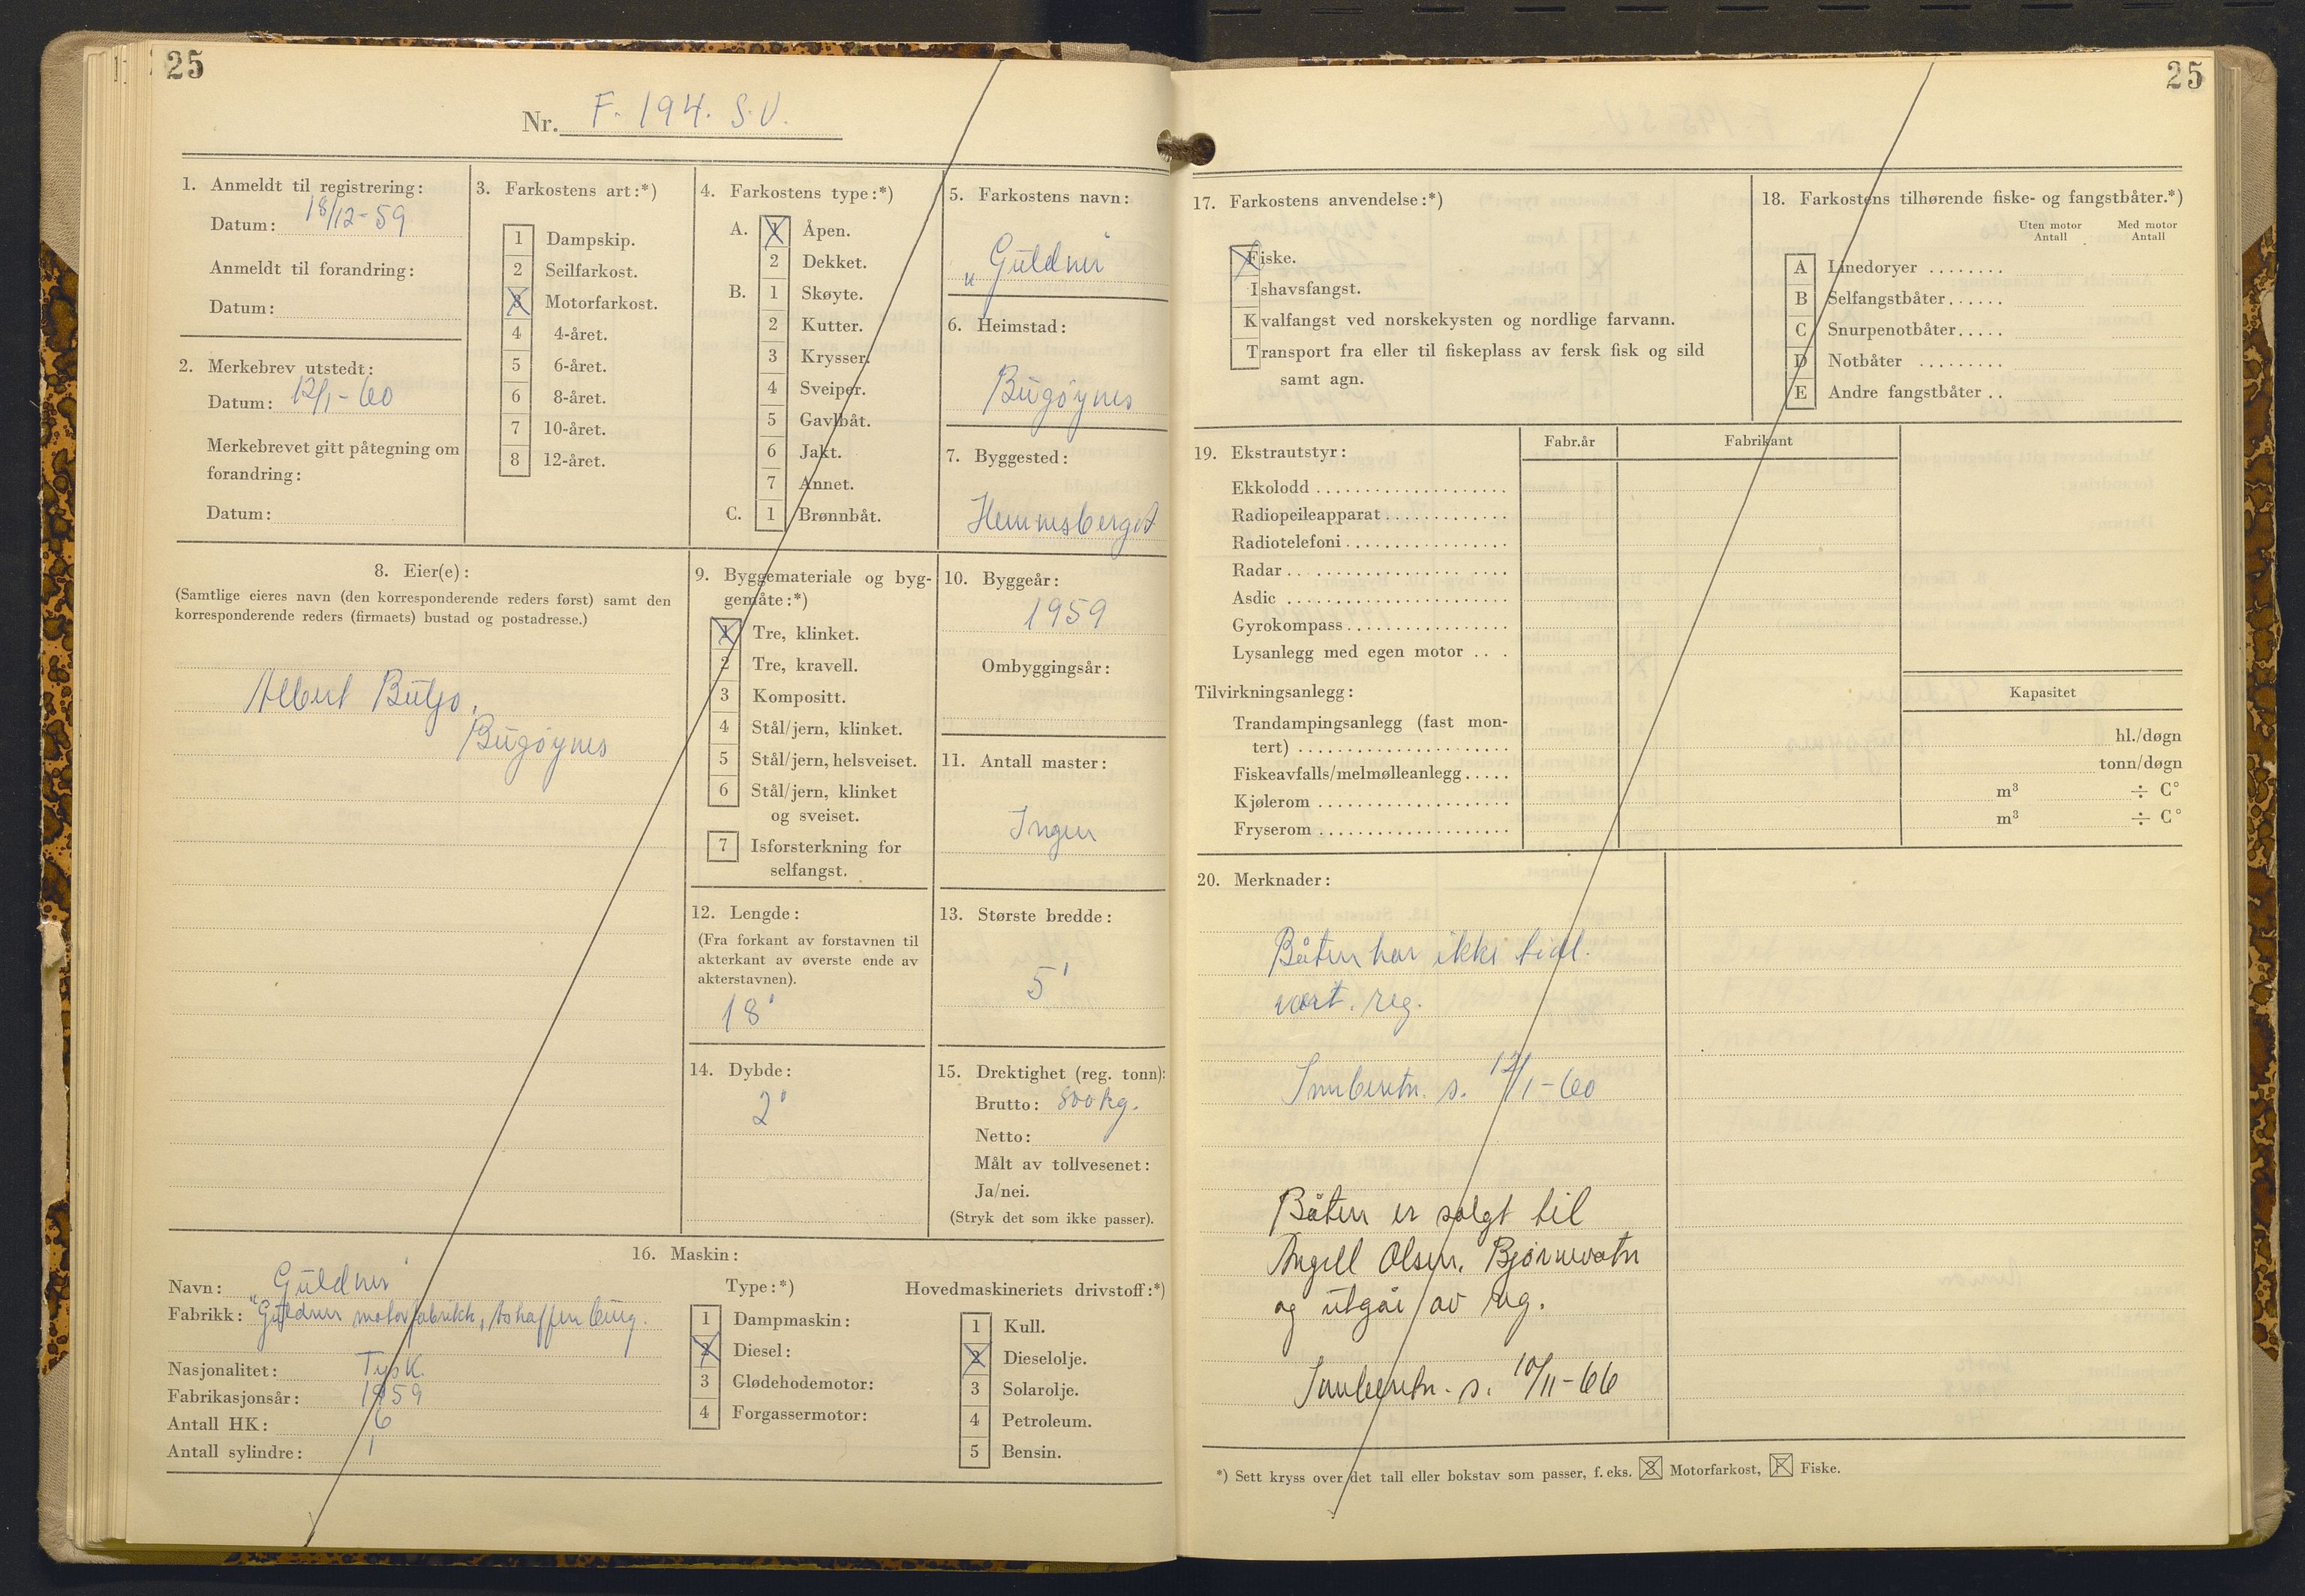 25
Nr. F. 194. S.V.
1. Anmeldt til registrering:
Datum: 18/12-59
Anmeldt til forandring:
Datum:
2. Merkebrev utstedt:
Datum: 12/1-60
Merkebrevet gitt påtegning om
forandring:
Datum:
3. Farkostens art:*)
1 Dampskip.
2 Seilfarkost.
3 Motorfarkost.
4 4-året.
5 6-året.
6 8-året.
7 10-året.
8 12-året.
4. Farkostens type:*)
A. 1 Åpen.
2 Dekket.
B. 1 Skøyte.
2 Kutter.
3 Krysser.
4 Sveiper.
5 Gavlbåt.
6 Jakt.
7 Annet.
C. 1 Brønnbåt.
5. Farkostens navn:
"Güldner"
6. Heimstad:
Bugøynes
7. Byggested:
Hemnesberget
8. Eier(e):
(Samtlige eieres navn (den korresponderende reders først) samt den
korresponderende reders (firmaets) bustad og postadresse.)
Albert Buljo,
Bugøynes
9. Byggemateriale og byg-
gemåte:*)
1 Tre, klinket.
2 Tre, kravell.
3 Kompositt.
4 Stål/jern, klinket.
5 Stål/jern, helsveiset.
6 Stål/jern, klinket
og sveiset.
7 Isforsterkning for
selfangst.
10. Byggeår:
1959
Ombyggingsår:
11. Antall master:
Ingen
12. Lengde:
(Fra forkant av forstavnen til
akterkant av øverste ende av
akterstavnen).
18'
13. Største bredde:
5'
14. Dybde:
2'
15. Drektighet (reg. tonn):
Brutto: 800 kg.
Netto:
Målt av tollvesenet:
Ja/nei.
(Stryk det som ikke passer).
16. Maskin:
Navn: "Güldner"
Fabrikk: Güldner motorfabrikk, Ashaffenburg.
Nasjonalitet: Tysk.
Fabrikasjonsår: 1959
Antall HK: 6
Antall sylindre: 1
Type:*)
1 Dampmaskin:
2 Diesel:
3 Glødehodemotor:
4 Forgassermotor:
Hovedmaskineriets drivstoff:*)
1 Kull.
2 Dieselolje.
3 Solarolje.
4 Petroleum.
5 Bensin.
25
17. Farkostens anvendelse:*)
Fiske.
Ishavsfangst.
Kvalfangst ved norskekysten og nordlige farvann.
Transport fra eller til fiskeplass av fersk fisk og sild
samt agn.
18. Farkostens tilhørende fiske- og fangstbåter.*)
Uten motor Med motor
Antall Antall
A Linedoryer ........
B Selfangstbåter......
C Snurpenotbåter.....
D Notbåter .........
E Andre fangstbåter ..
19. Ekstrautstyr:
Fabr.år Fabrikant
Ekkolodd ....................
Radiopeileapparat .............
Radiotelefoni .................
Radar ......................
Asdic .......................
Gyrokompass .................
Lysanlegg med egen motor ....
Tilvirkningsanlegg:
Kapasitet
Trandampingsanlegg (fast mon-
tert) ...................... hl./døgn
Fiskeavfalls/melmølleanlegg ..... tonn/døgn
Kjølerom .................... m³ ÷ C°
Fryserom .................... m³ ÷ C°
20. Merknader:
Båten har ikke tidl.
vært. reg.
Innberetn. s. 12/1-60
Båten er solgt til
Angell Olsen, Bjørnevatn
og utgår av reg.
Innberetn. s. 10/11-66
*) Sett kryss over det tall eller bokstav som passer, f. eks. 3 Motorfarkost, F Fiske.